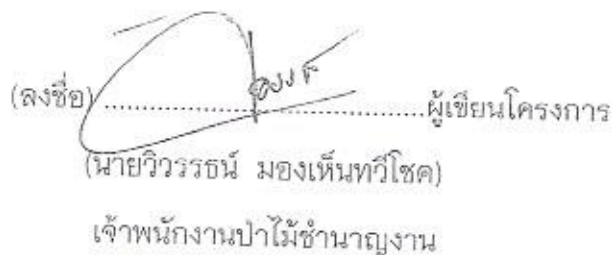 (ลงชื่อ)........................................ผู้เขียนโครงการ
(นายวิวรรธน์ มองเห็นทวีโชค)
เจ้าพนักงานป่าไม้ชำนาญงาน